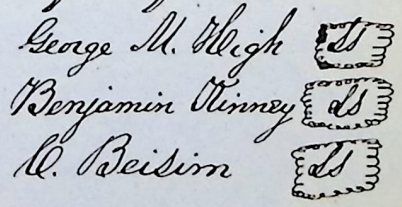 George M. High LS
Benjamin Kinney LS
C. Beisim LS